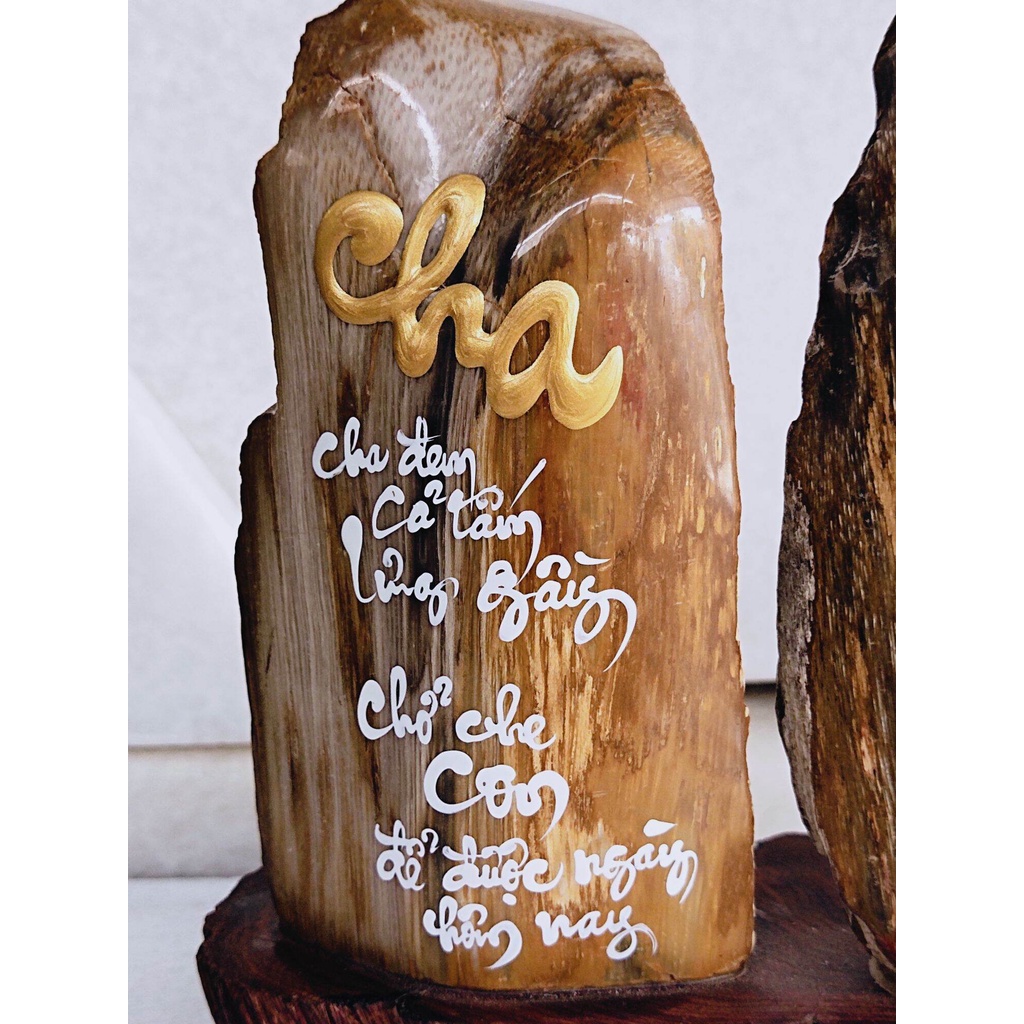 Cha
Cha đem
cả tấm
lưng gầy
Chở che
con
để được ngày
hôm nay